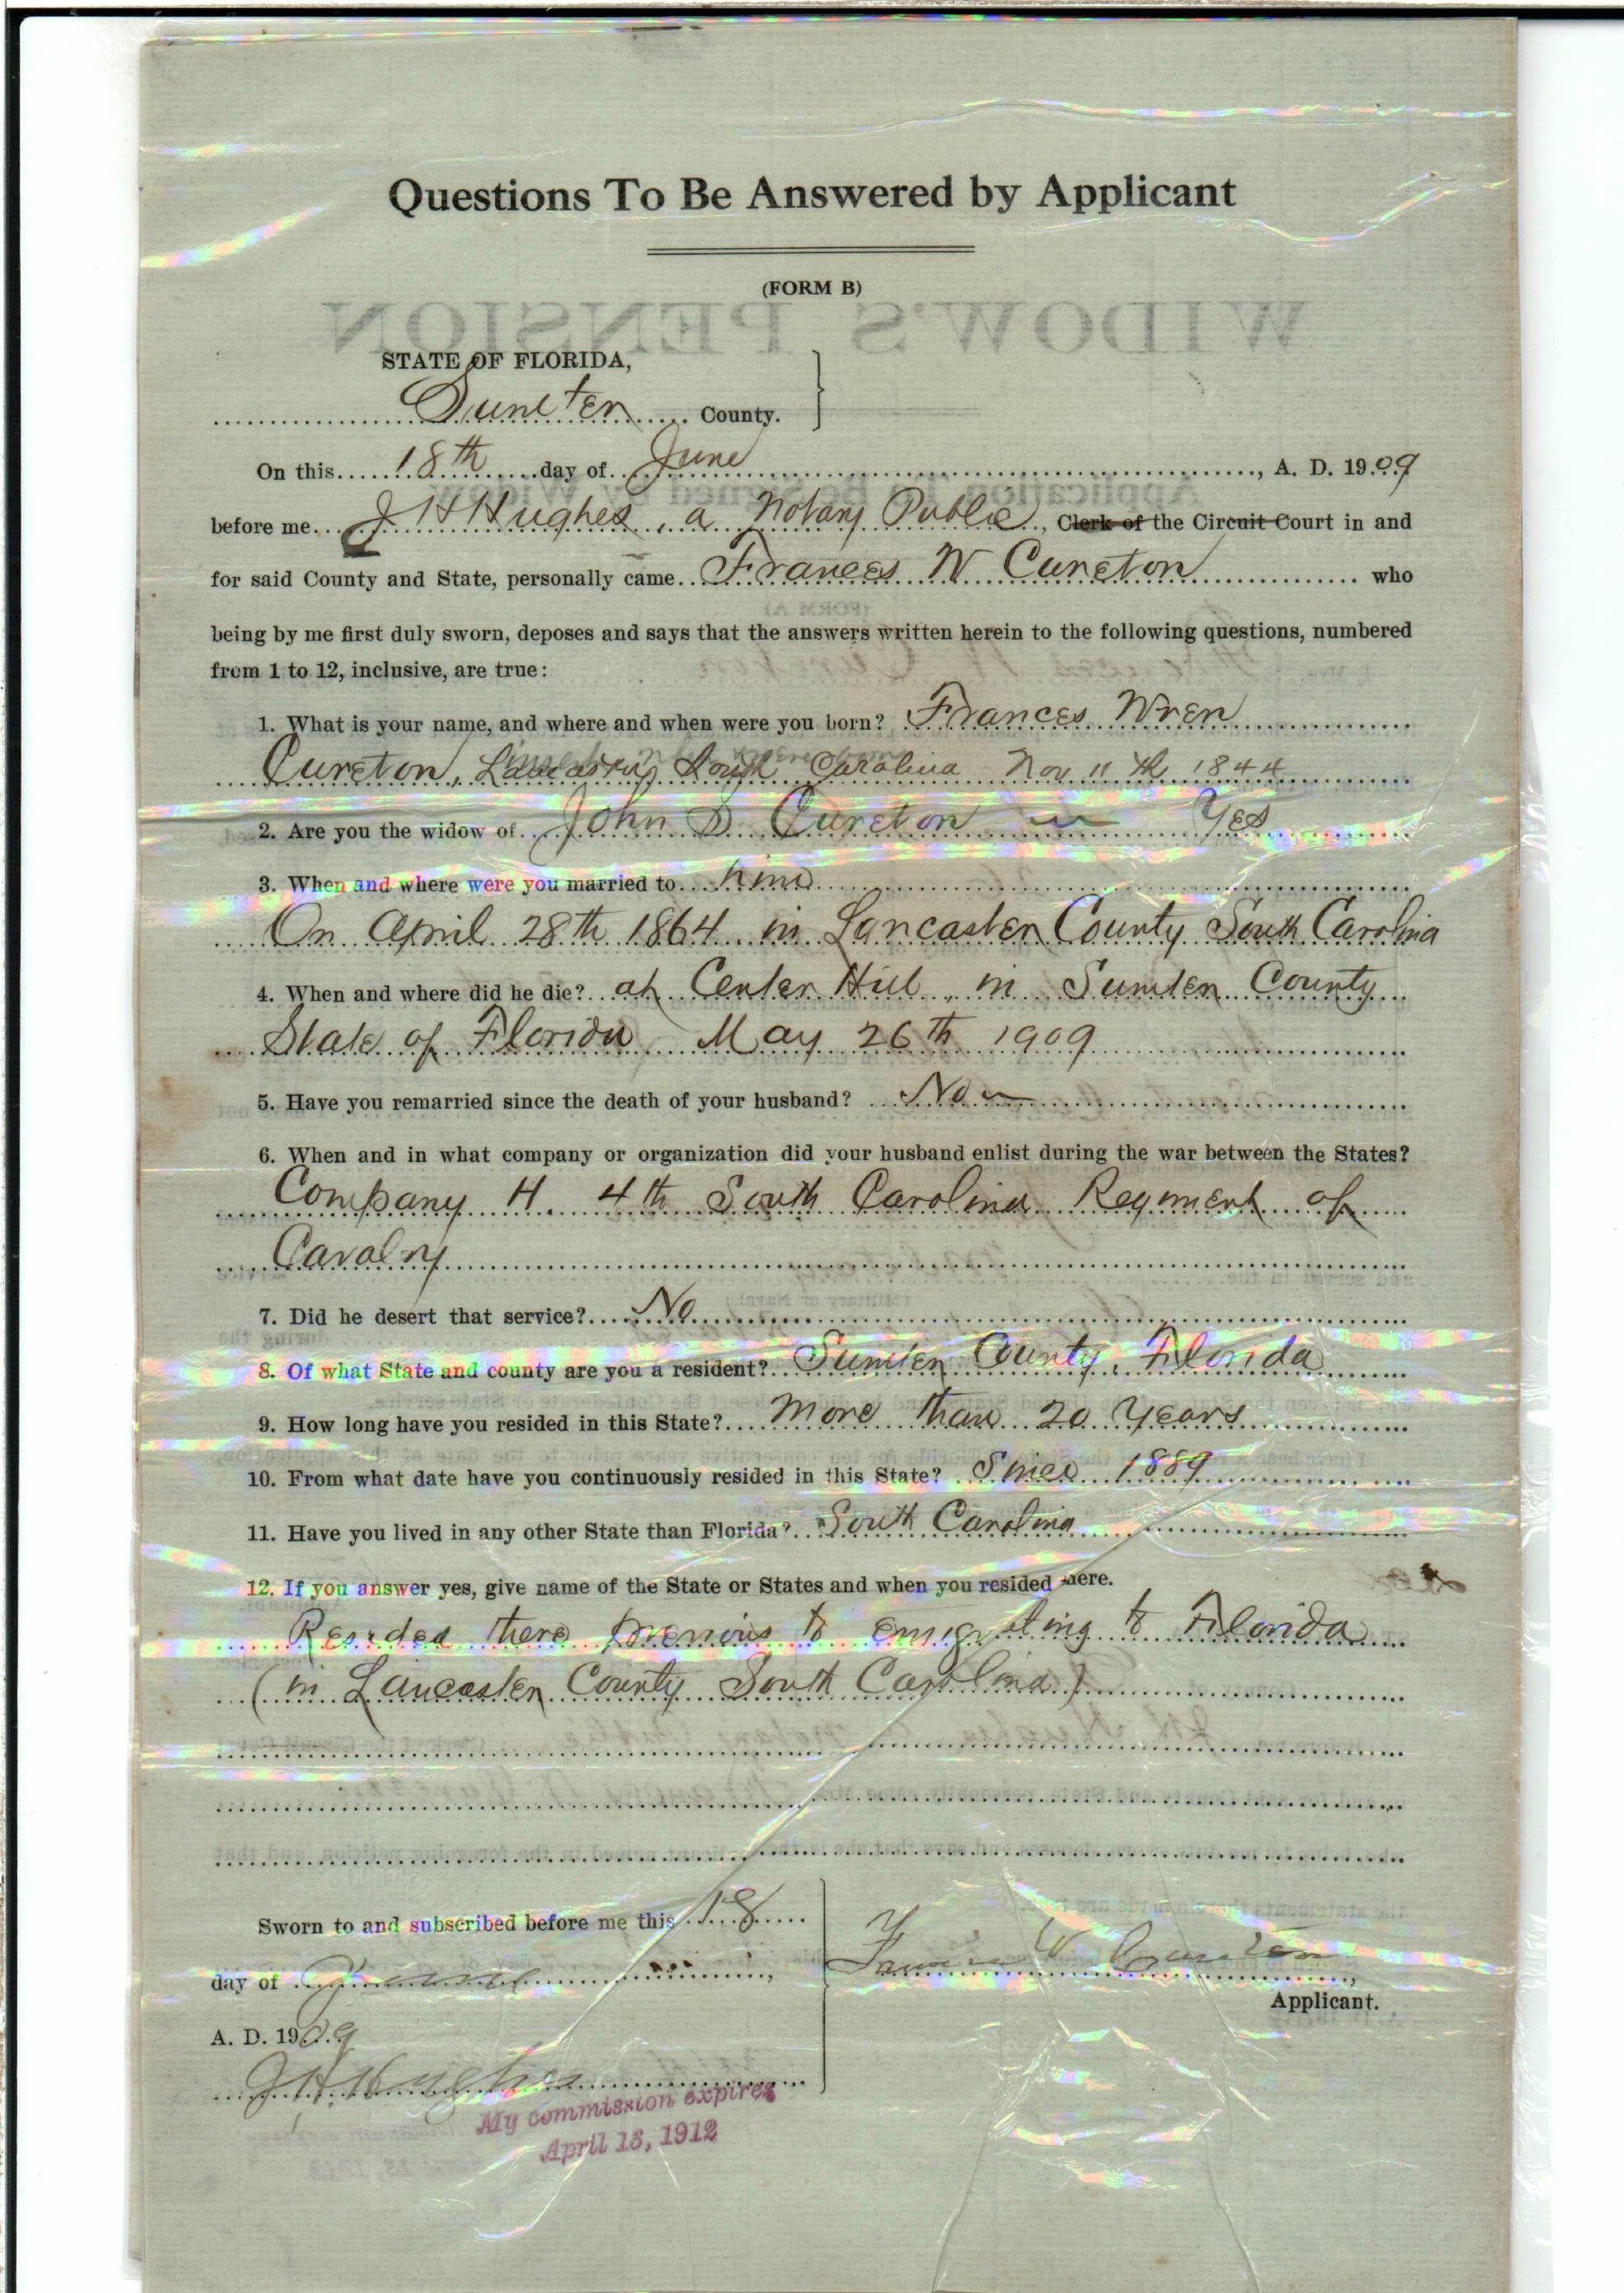 Questions To Be Answered by Applicant
(FORM B)
STATE OF FLORIDA,
Sumter County.
On this 18th day of June, A. D. 1909
before me J H Hughes, a Notary Public, Clerk of the Circuit Court in and
for said County and State, personally came Frances W Cureton who
being by me first duly sworn, deposes and says that the answers written herein to the following questions, numbered
from 1 to 12, inclusive, are true:
1. What is your name, and where and when were you born? Frances Wren
Cureton, Lancaster, South Carolina Nov 11th 1844
2. Are you the widow of John S Cureton Yes
3. When and where were you married to him
On April 28th 1864 in Lancaster County South Carolina
4. When and where did he die? at Center Hill, in Sumter County
State of Florida May 26th 1909
5. Have you remarried since the death of your husband? No
6. When and in what company or organization did your husband enlist during the war between the States?
Company H. 4th South Carolina Regiment of
Cavalry
7. Did he desert that service? No
8. Of what State and county are you a resident? Sumter County, Florida
9. How long have you resided in this State? More than 20 Years
10. From what date have you continuously resided in this State? Since 1889
11. Have you lived in any other State than Florida? South Carolina
12. If you answer yes, give name of the State or States and when you resided there.
Resided there previous to emigrating to Florida
(in Lancaster County South Carolina)
Sworn to and subscribed before me this 18
day of June,
Frances W Cureton,
Applicant.
A. D. 1909
J H Hughes
My commission expires
April 13, 1912